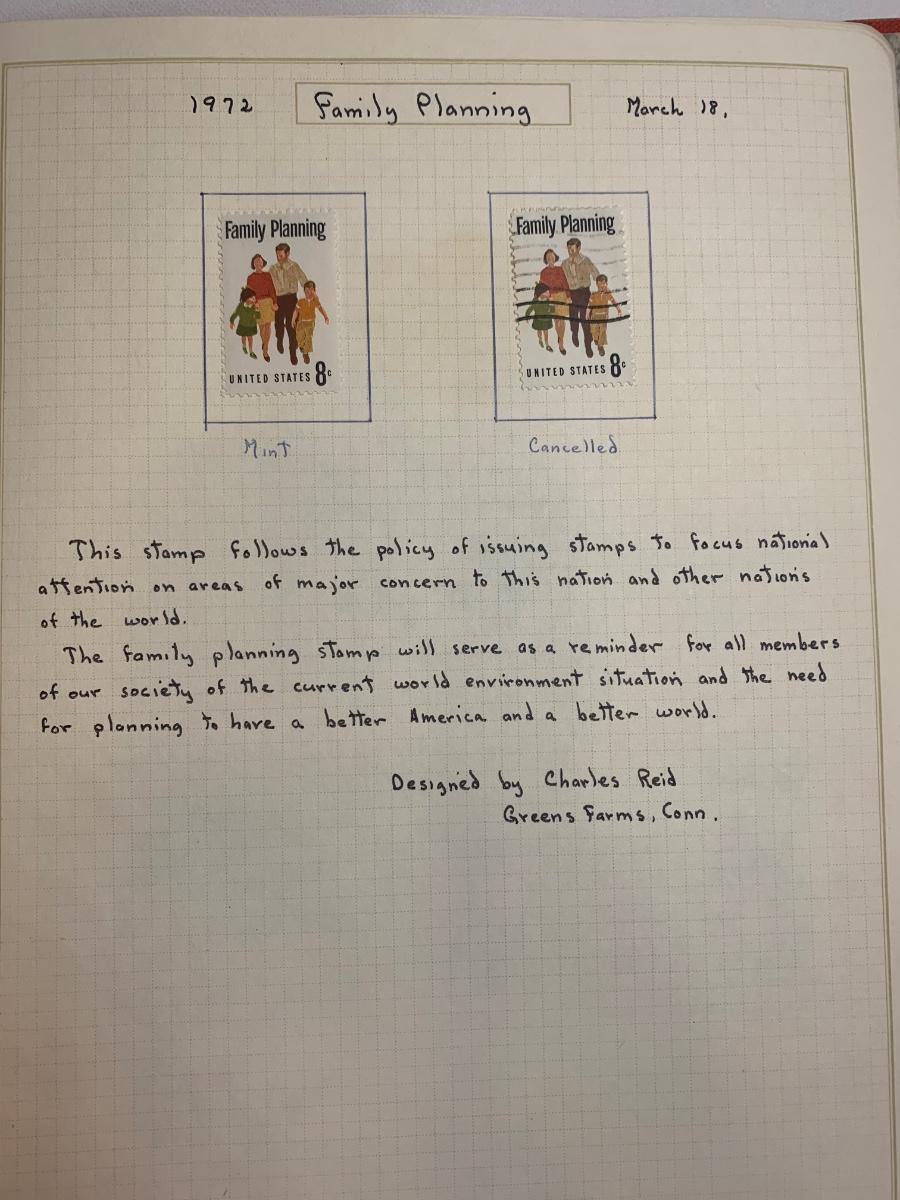 1972 Family Planning March 18,
Family Planning
UNITED STATES 8c
Family Planning
UNITED STATES 8c
Mint
Cancelled
This stamp follows the policy of issuing stamps to focus national
attention on areas of major concern to this nation and other nations
of the world.
The family planning stamp will serve as a reminder for all members
of our society of the current world environment situation and the need
for planning to have a better America and a better world.
Designed by Charles Reid
Greens Farms, Conn.